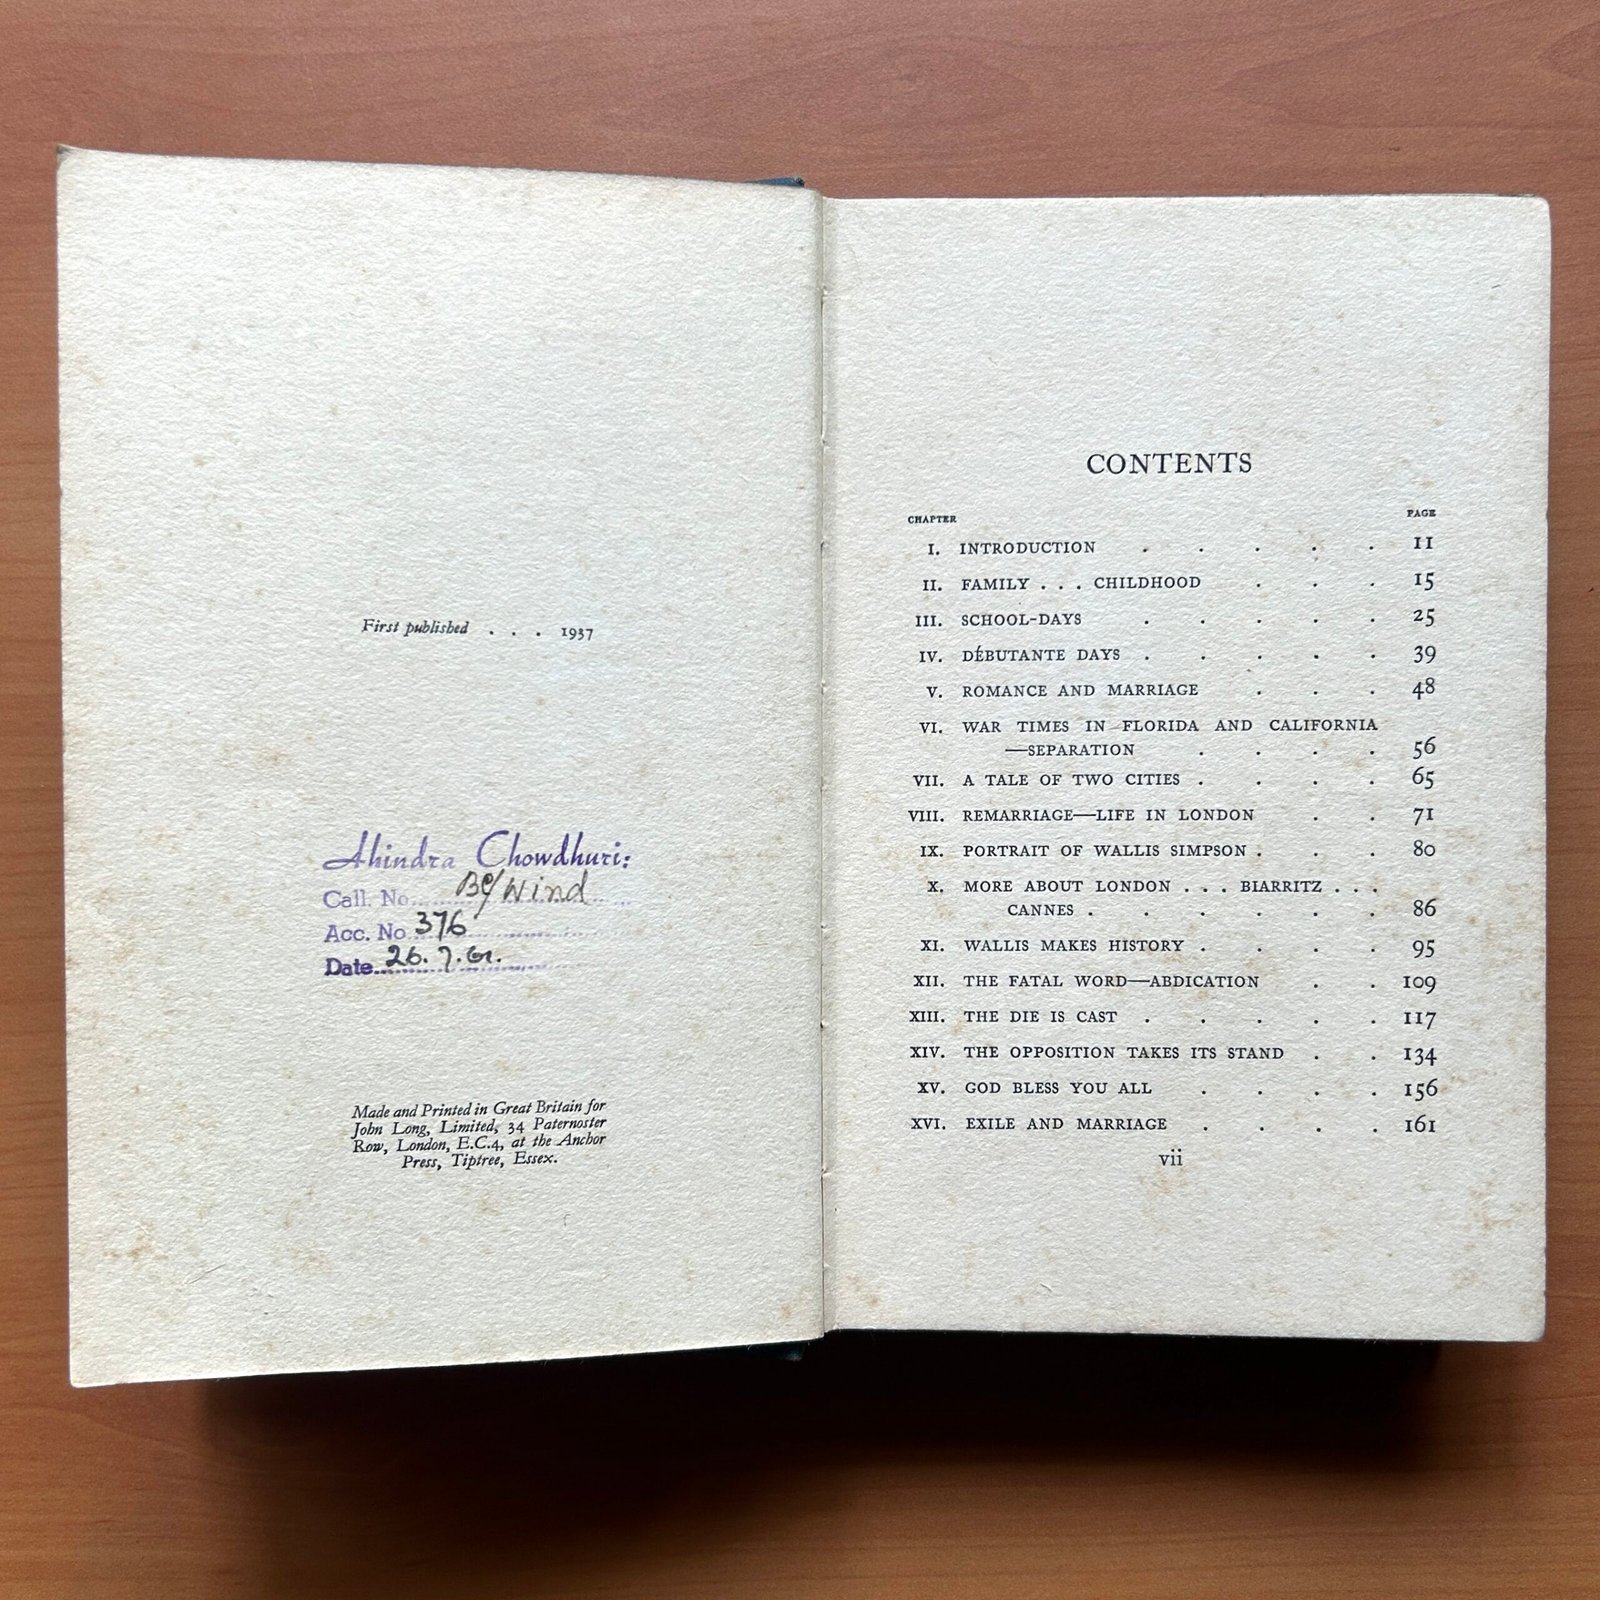 First published . . . 1937
Ahindra Chowdhuri:
Call. No. B/Wind
Acc. No 376
Date 26. 7. 61.
Made and Printed in Great Britain for
John Long, Limited, 34 Paternoster
Row, London, E.C.4, at the Anchor
Press, Tiptree, Essex.
CONTENTS
CHAPTER PAGE
I. INTRODUCTION . . . . . 11
II. FAMILY . . . CHILDHOOD . . . 15
III. SCHOOL-DAYS . . . . . 25
IV. DÉBUTANTE DAYS . . . . . 39
V. ROMANCE AND MARRIAGE . . . 48
VI. WAR TIMES IN FLORIDA AND CALIFORNIA
—SEPARATION . . . . 56
VII. A TALE OF TWO CITIES . . . . 65
VIII. REMARRIAGE—LIFE IN LONDON . . 71
IX. PORTRAIT OF WALLIS SIMPSON . . 80
X. MORE ABOUT LONDON . . . BIARRITZ . . .
CANNES . . . . . . 86
XI. WALLIS MAKES HISTORY . . . . 95
XII. THE FATAL WORD—ABDICATION . . 109
XIII. THE DIE IS CAST . . . . . 117
XIV. THE OPPOSITION TAKES ITS STAND . . 134
XV. GOD BLESS YOU ALL . . . . 156
XVI. EXILE AND MARRIAGE . . . . 161
vii